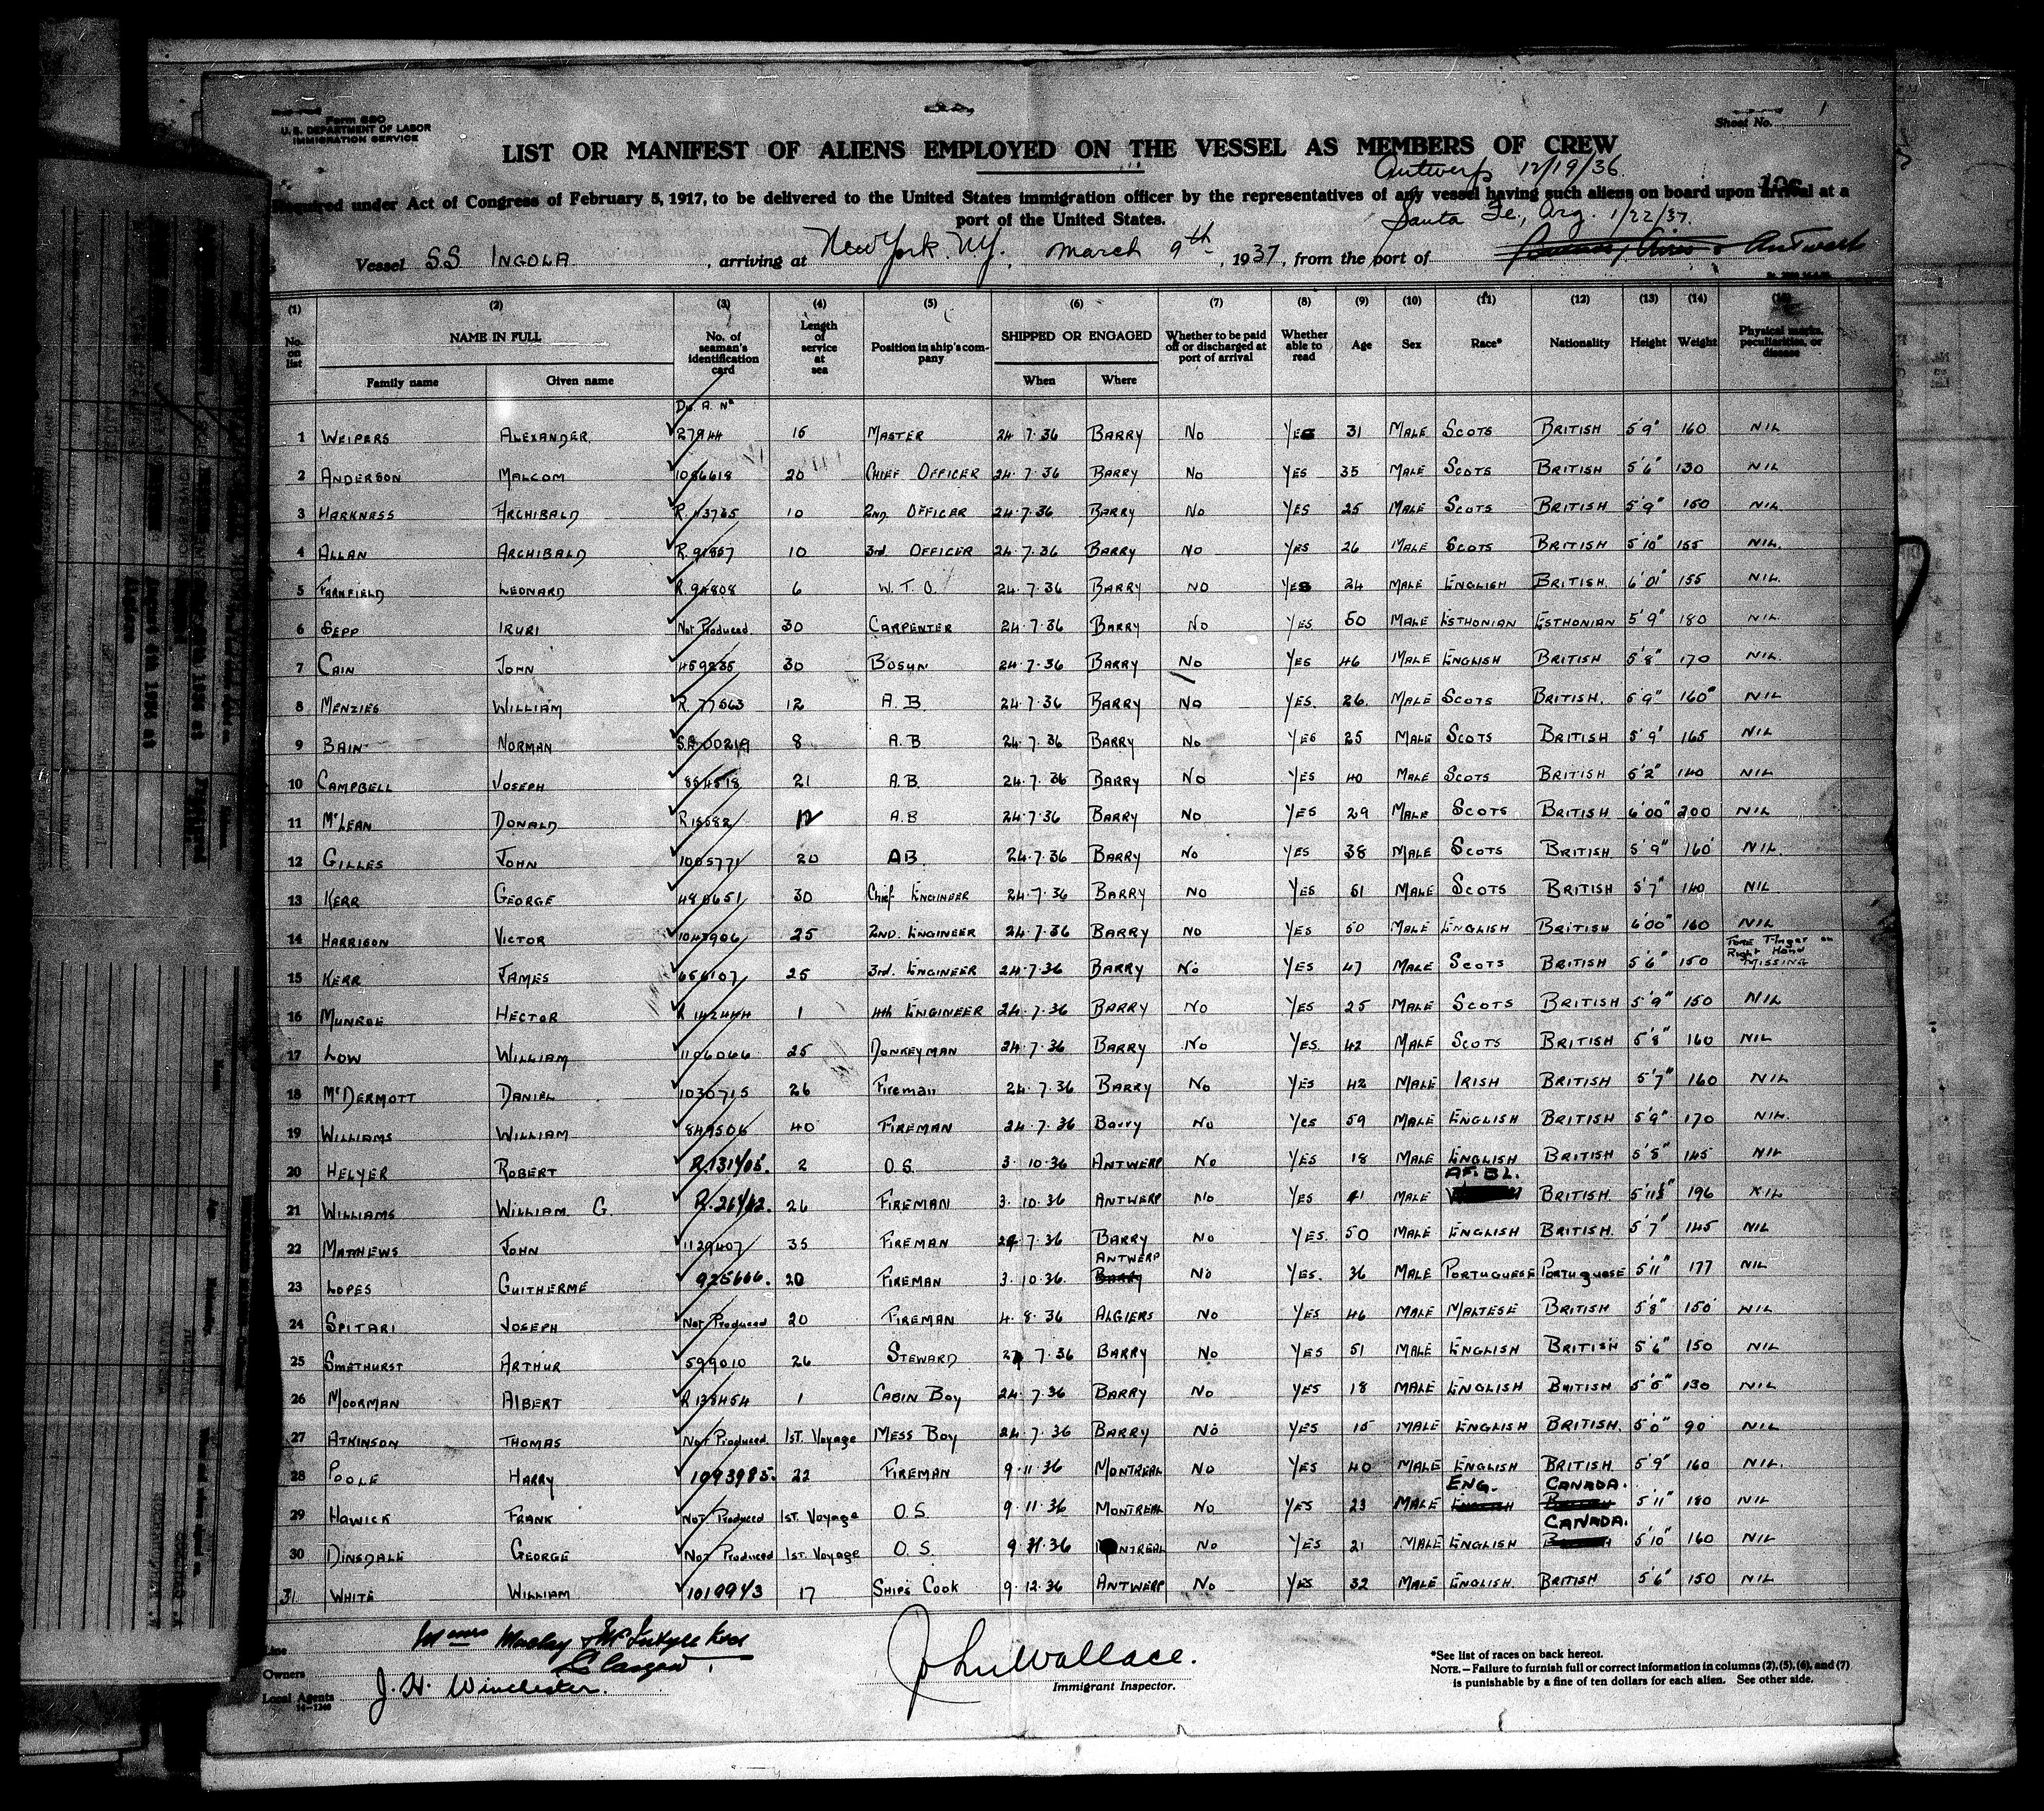 Form 680
U. S. DEPARTMENT OF LABOR
IMMIGRATION SERVICE
Sheet No. 1
LIST OR MANIFEST OF ALIENS EMPLOYED ON THE VESSEL AS MEMBERS OF CREW
Antwerp 12/19/36
Required under Act of Congress of February 5, 1917, to be delivered to the United States immigration officer by the representatives of any vessel having such aliens on board upon arrival at a
port of the United States.
Santa Fe, Arg. 1/22/37.
Vessel SS INGOLA, arriving at New York. NY., March 9th, 1937, from the port of Buenos Aires & Antwerp
(1) (2) (3) (4) (5) (6) (7) (8) (9) (10) (11) (12) (13) (14) (15)
No. on list NAME IN FULL No. of seaman's identification card Length of service at sea Position in ship's company SHIPPED OR ENGAGED Whether to be paid off or discharged at port of arrival Whether able to read Age Sex Race* Nationality Height Weight Physical marks, peculiarities, or disease
Family name Given name When Where
Dis. A. No
1 WEIPERS ALEXANDER 27944 15 MASTER 24.7.36 BARRY No YES 31 MALE SCOTS BRITISH 5'9" 160 NIL
2 ANDERSON MALCOM 1086618 20 CHIEF OFFICER 24.7.36 BARRY No YES 35 MALE SCOTS BRITISH 5'6" 130 NIL
3 HARKNESS ARCHIBALD R. 43765 10 2ND OFFICER 24.7.36 BARRY No YES 25 MALE SCOTS BRITISH 5'9" 150 NIL
4 ALLAN ARCHIBALD R. 91857 10 3rd OFFICER 24.7.36 BARRY NO YES 26 MALE SCOTS BRITISH 5'10" 155 NIL.
5 FARNFIELD LEONARD R. 94808 6 W. T. O. 24.7.36 BARRY NO YES 24 MALE ENGLISH BRITISH. 6'01" 155 NIL.
6 SEPP IRURI Not Produced 30 CARPENTER 24.7.36 BARRY No YES 50 MALE ESTHONIAN ESTHONIAN 5'9" 180 NIL.
7 CAIN JOHN 459235 30 BOSUN 24.7.36 BARRY No YES 46 MALE ENGLISH BRITISH 5'8" 170 NIL.
8 MENZIES WILLIAM R. 77563 12 A. B. 24.7.36 BARRY No YES. 26. MALE SCOTS BRITISH. 5'9" 160 NIL
9 BAIN NORMAN 8 A.B 24.7.36 BARRY No YES 25 MALE SCOTS BRITISH 5'9" 165 NIL
10 CAMPBELL JOSEPH 884518 21 A.B. 24.7.36 BARRY No YES 40 MALE SCOTS BRITISH 5'2" 140 NIL
11 McLEAN DONALD R15582 12 A.B 24.7.36 BARRY No YES 29 MALE SCOTS BRITISH 6'00" 200 NIL
12 GILLES JOHN 1005771 20 AB. 24.7.36 BARRY No YES 38 MALE SCOTS BRITISH 5'9" 160 NIL.
13 KERR GEORGE 480651 30 Chief ENGINEER 24.7.36 BARRY No YES 61 MALE SCOTS BRITISH 5'7" 140 NIL
14 HARRISON VICTOR 1047906 25 2ND. ENGINEER 24.7.36 BARRY NO YES 50 MALE ENGLISH BRITISH 6'00" 160 NIL
15 KERR JAMES 656107 25 3rd. ENGINEER 24.7.36 BARRY No YES 47 MALE SCOTS BRITISH 5'6" 150 Fore Finger on Right Hand MISSING
16 MUNROE HECTOR R 142444 1 4th ENGINEER 24.7.36 BARRY No YES 25 MALE SCOTS BRITISH 5'9" 150 NIL
17 LOW WILLIAM 1106066 25 DONKEYMAN 24.7.36 BARRY No YES. 42 MALE SCOTS BRITISH 5'8" 160 NIL
18 McDERMOTT DANIEL 1030715 26 Fireman 24.7.36 BARRY No YES 42 MALE IRISH BRITISH 5'7" 160 NIL
19 WILLIAMS WILLIAM 849506 40 FIREMAN 24.7.36 Barry No Yes 59 MALE ENGLISH BRITISH 5'9" 170 NIL.
20 HELYER ROBERT 2 O.S. 3.10.36 ANTWERP No YES 18 MALE ENGLISH BRITISH 5'8" 145 NIL
21 WILLIAMS WILLIAM G. 26 FIREMAN 3.10.36 ANTWERP No YES 41 MALE AF. BL. BRITISH. 5'11½ 196 NIL
22 MATTHEWS JOHN 1129407 35 FIREMAN 24.7.36 BARRY No YES. 50 MALE ENGLISH BRITISH. 5'7" 145 NIL
23 LOPES GUITHERME 925666. 20 FIREMAN 3.10.36. ANTWERP Barry No YES. 36 MALE PORTUGUESE PORTUGUESE 5'11" 177 NIL
24 SPITARI JOSEPH Not Produced 20 FIREMAN 4.8.36 ALGIERS No YES 46 MALE MALTESE BRITISH 5'8" 150 NIL
25 SMETHURST ARTHUR 599010 26 STEWARD 24.7.36 BARRY No YES 51 MALE ENGLISH BRITISH 5'6" 150 NIL
26 MOORMAN ALBERT R 138454 1 CABIN BOY 24.7.36 BARRY No YES 18 MALE ENGLISH BRITISH 5'5" 130 NIL
27 ATKINSON THOMAS Not Produced. 1st. Voyage MESS BOY 24.7.36 BARRY No YES 15 MALE ENGLISH BRITISH. 5'0" 90 NIL
28 POOLE HARRY 1093985. 22 FIREMAN 9.11.36 MONTREAL No YES 40 MALE ENGLISH BRITISH 5'9" 160 NIL.
29 HAWICK FRANK Not Produced 1st. Voyage O.S. 9.11.36 MONTREAL No YES 23 MALE ENG. English CANADA. British 5'11" 180 NIL
30 DINSDALE GEORGE Not Produced 1st. Voyage O.S. 9.11.36 MONTREAL No YES 21 MALE ENGLISH CANADA. 5'10" 160 NIL
31 WHITE WILLIAM 1019943 17 SHIPS COOK 9.12.36 ANTWERP No YES 32 MALE ENGLISH. BRITISH 5'6" 150 NIL
Line
Owners Glasgow
Local Agents J. H. Winchester.
14-1240
John Wallace.
Immigrant Inspector.
*See list of races on back hereof.
NOTE.—Failure to furnish full or correct information in columns (2), (5), (6), and (7)
is punishable by a fine of ten dollars for each alien. See other side.